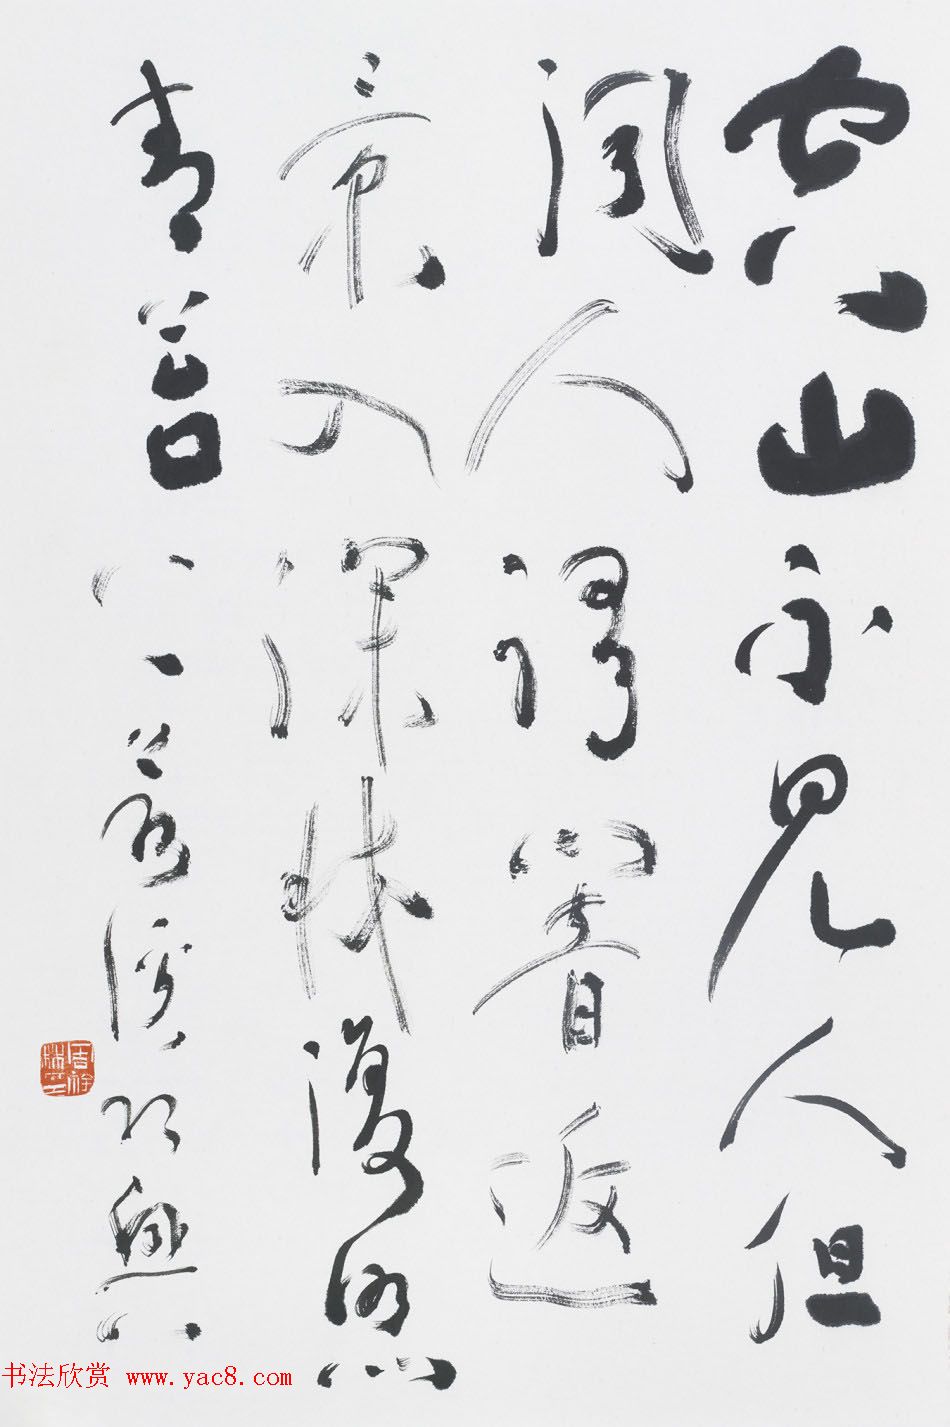 空山不見人但
聞人語響返
景入深林復照
青苔上
书法欣赏 www.yac8.com